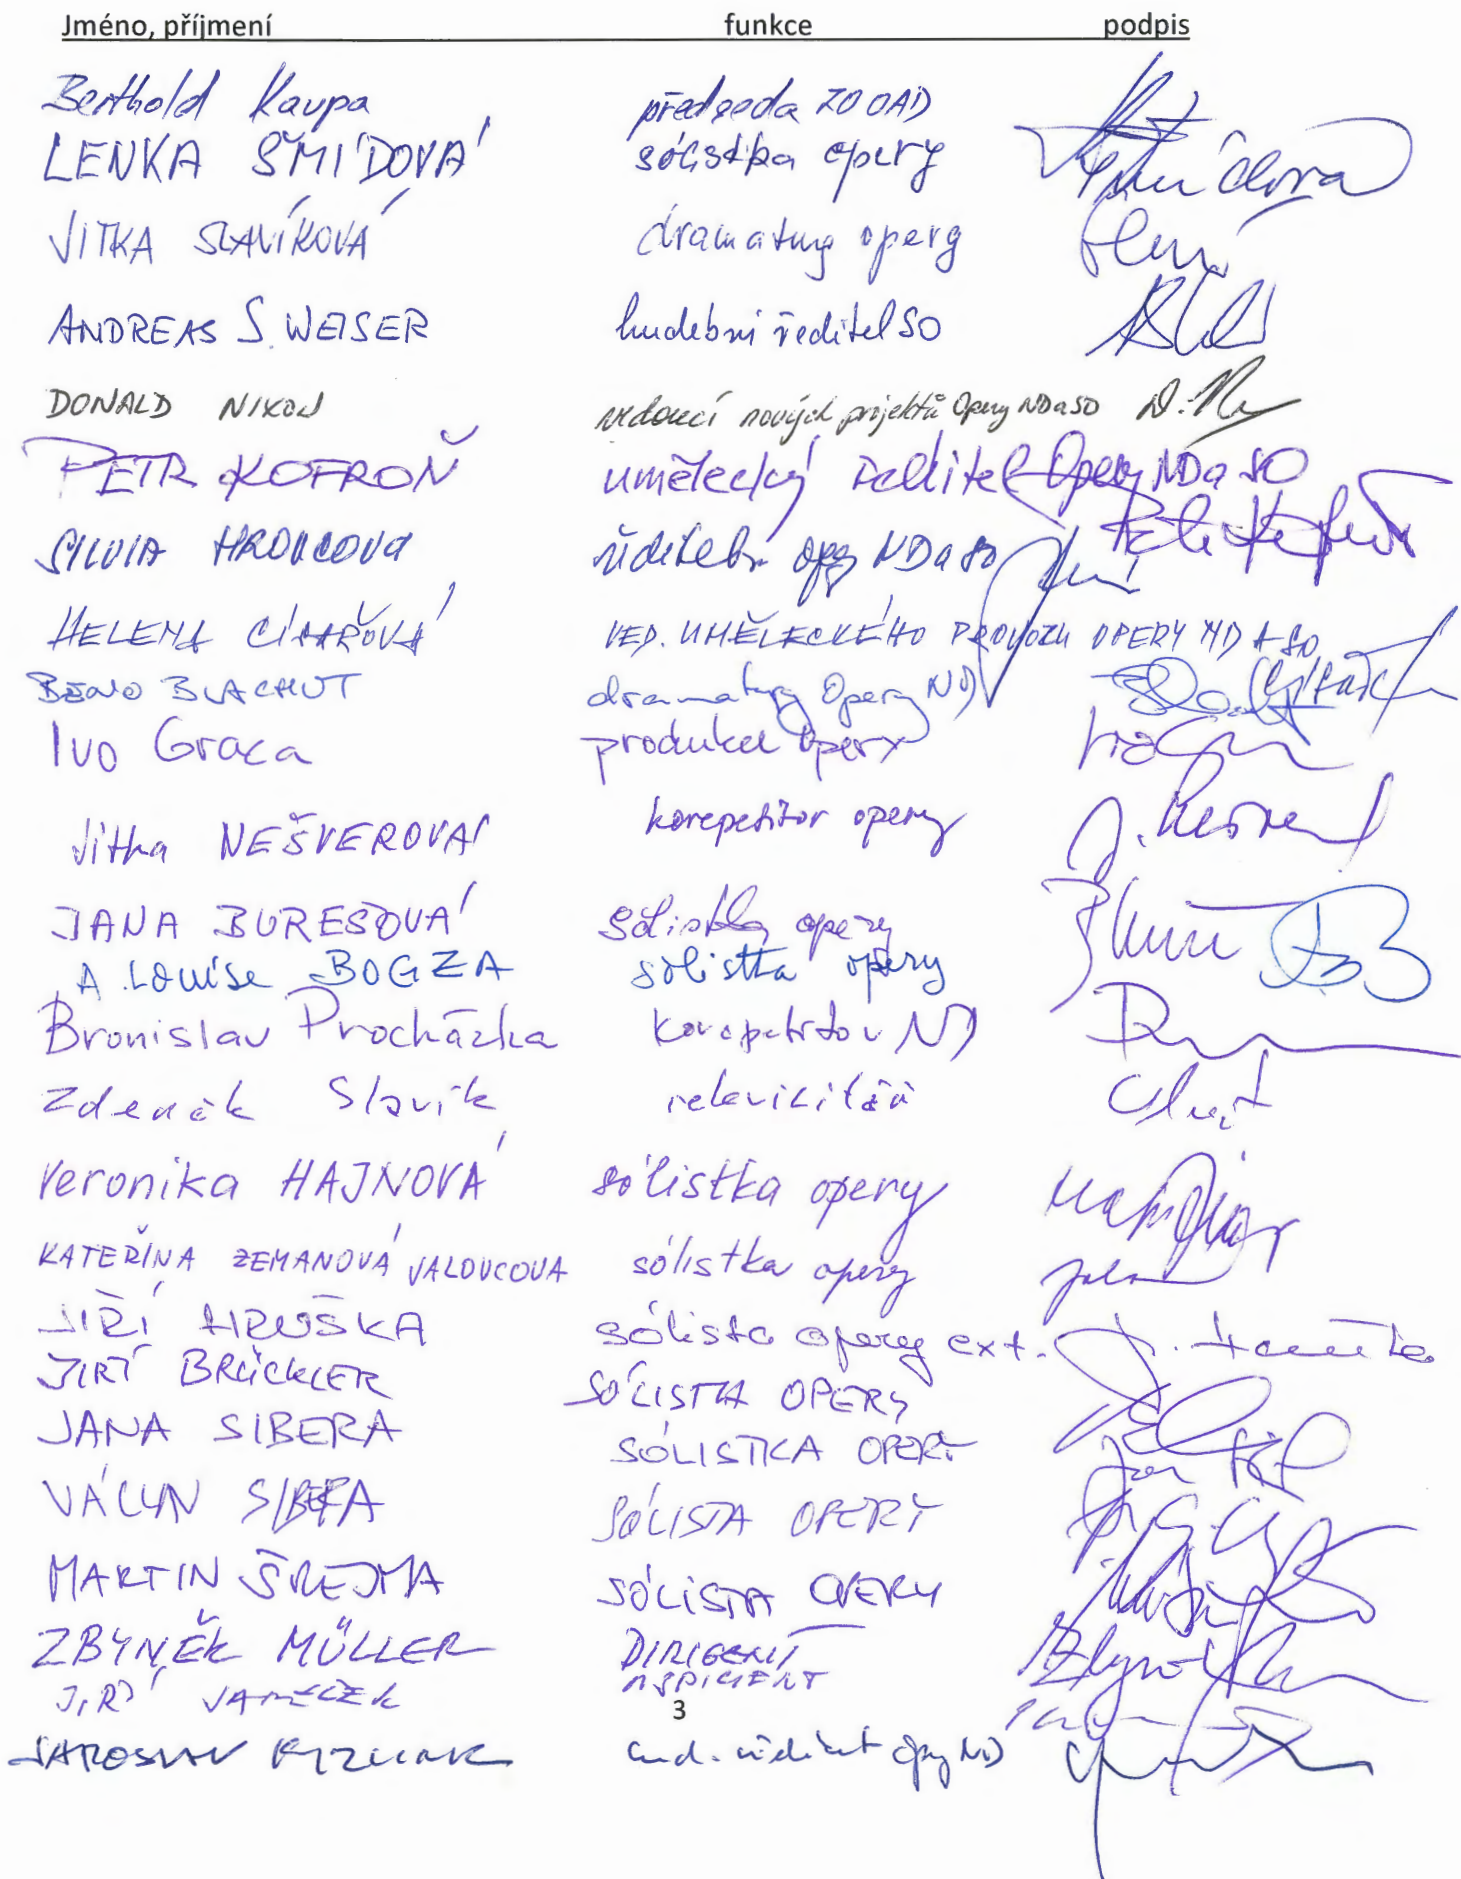 Jméno, příjmení funkce podpis
Berthold Kaupa předseda ZO OAD
LENKA ŠMÍDOVÁ sólistka opery Šmídová
JITKA SLAVÍKOVÁ dramaturg opery
ANDREAS S. WEISER hudební ředitel SO
DONALD NIXON vedoucí nových projektů Opery ND a SO
PETR KOFROŇ umělecký ředitel Opery ND a SO
SILVIA HRONCOVÁ ředitelka opery ND a SO
HELENA CÍSAŘOVÁ VED. UMĚLECKÉHO PROVOZU OPERY ND A SO
BENO BLACHUT dramaturg Opery ND
Ivo Graca produkce opery
Jitka NEŠVEROVÁ korepetitor opery
JANA BUREŠOVÁ sólistka opery
A. LOUISE BOGZA sólistka opery
Bronislav Procházka korepetitor ND
Zdeněk Slavík rekvizitář
Veronika HAJNOVÁ sólistka opery
KATEŘINA ZEMANOVÁ JALOVCOVÁ sólistka opery
JIŘÍ HRUŠKA sólista opery ext.
JIŘÍ BRÜCKLER SÓLISTA OPERY
JANA SIBERA SÓLISTKA OPERY
VÁCLAV SIBERA SÓLISTA OPERY
MARTIN ŠREJMA SÓLISTA OPERY
ZBYNĚK MÜLLER DIRIGENT
JIŘÍ INSPICIENT
3
JAROSLAV KYZLINK hud. ředitel Opery ND